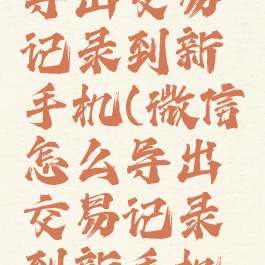 导出交易
记录到新
手机(微信
怎么导出
交易记录
到新手机